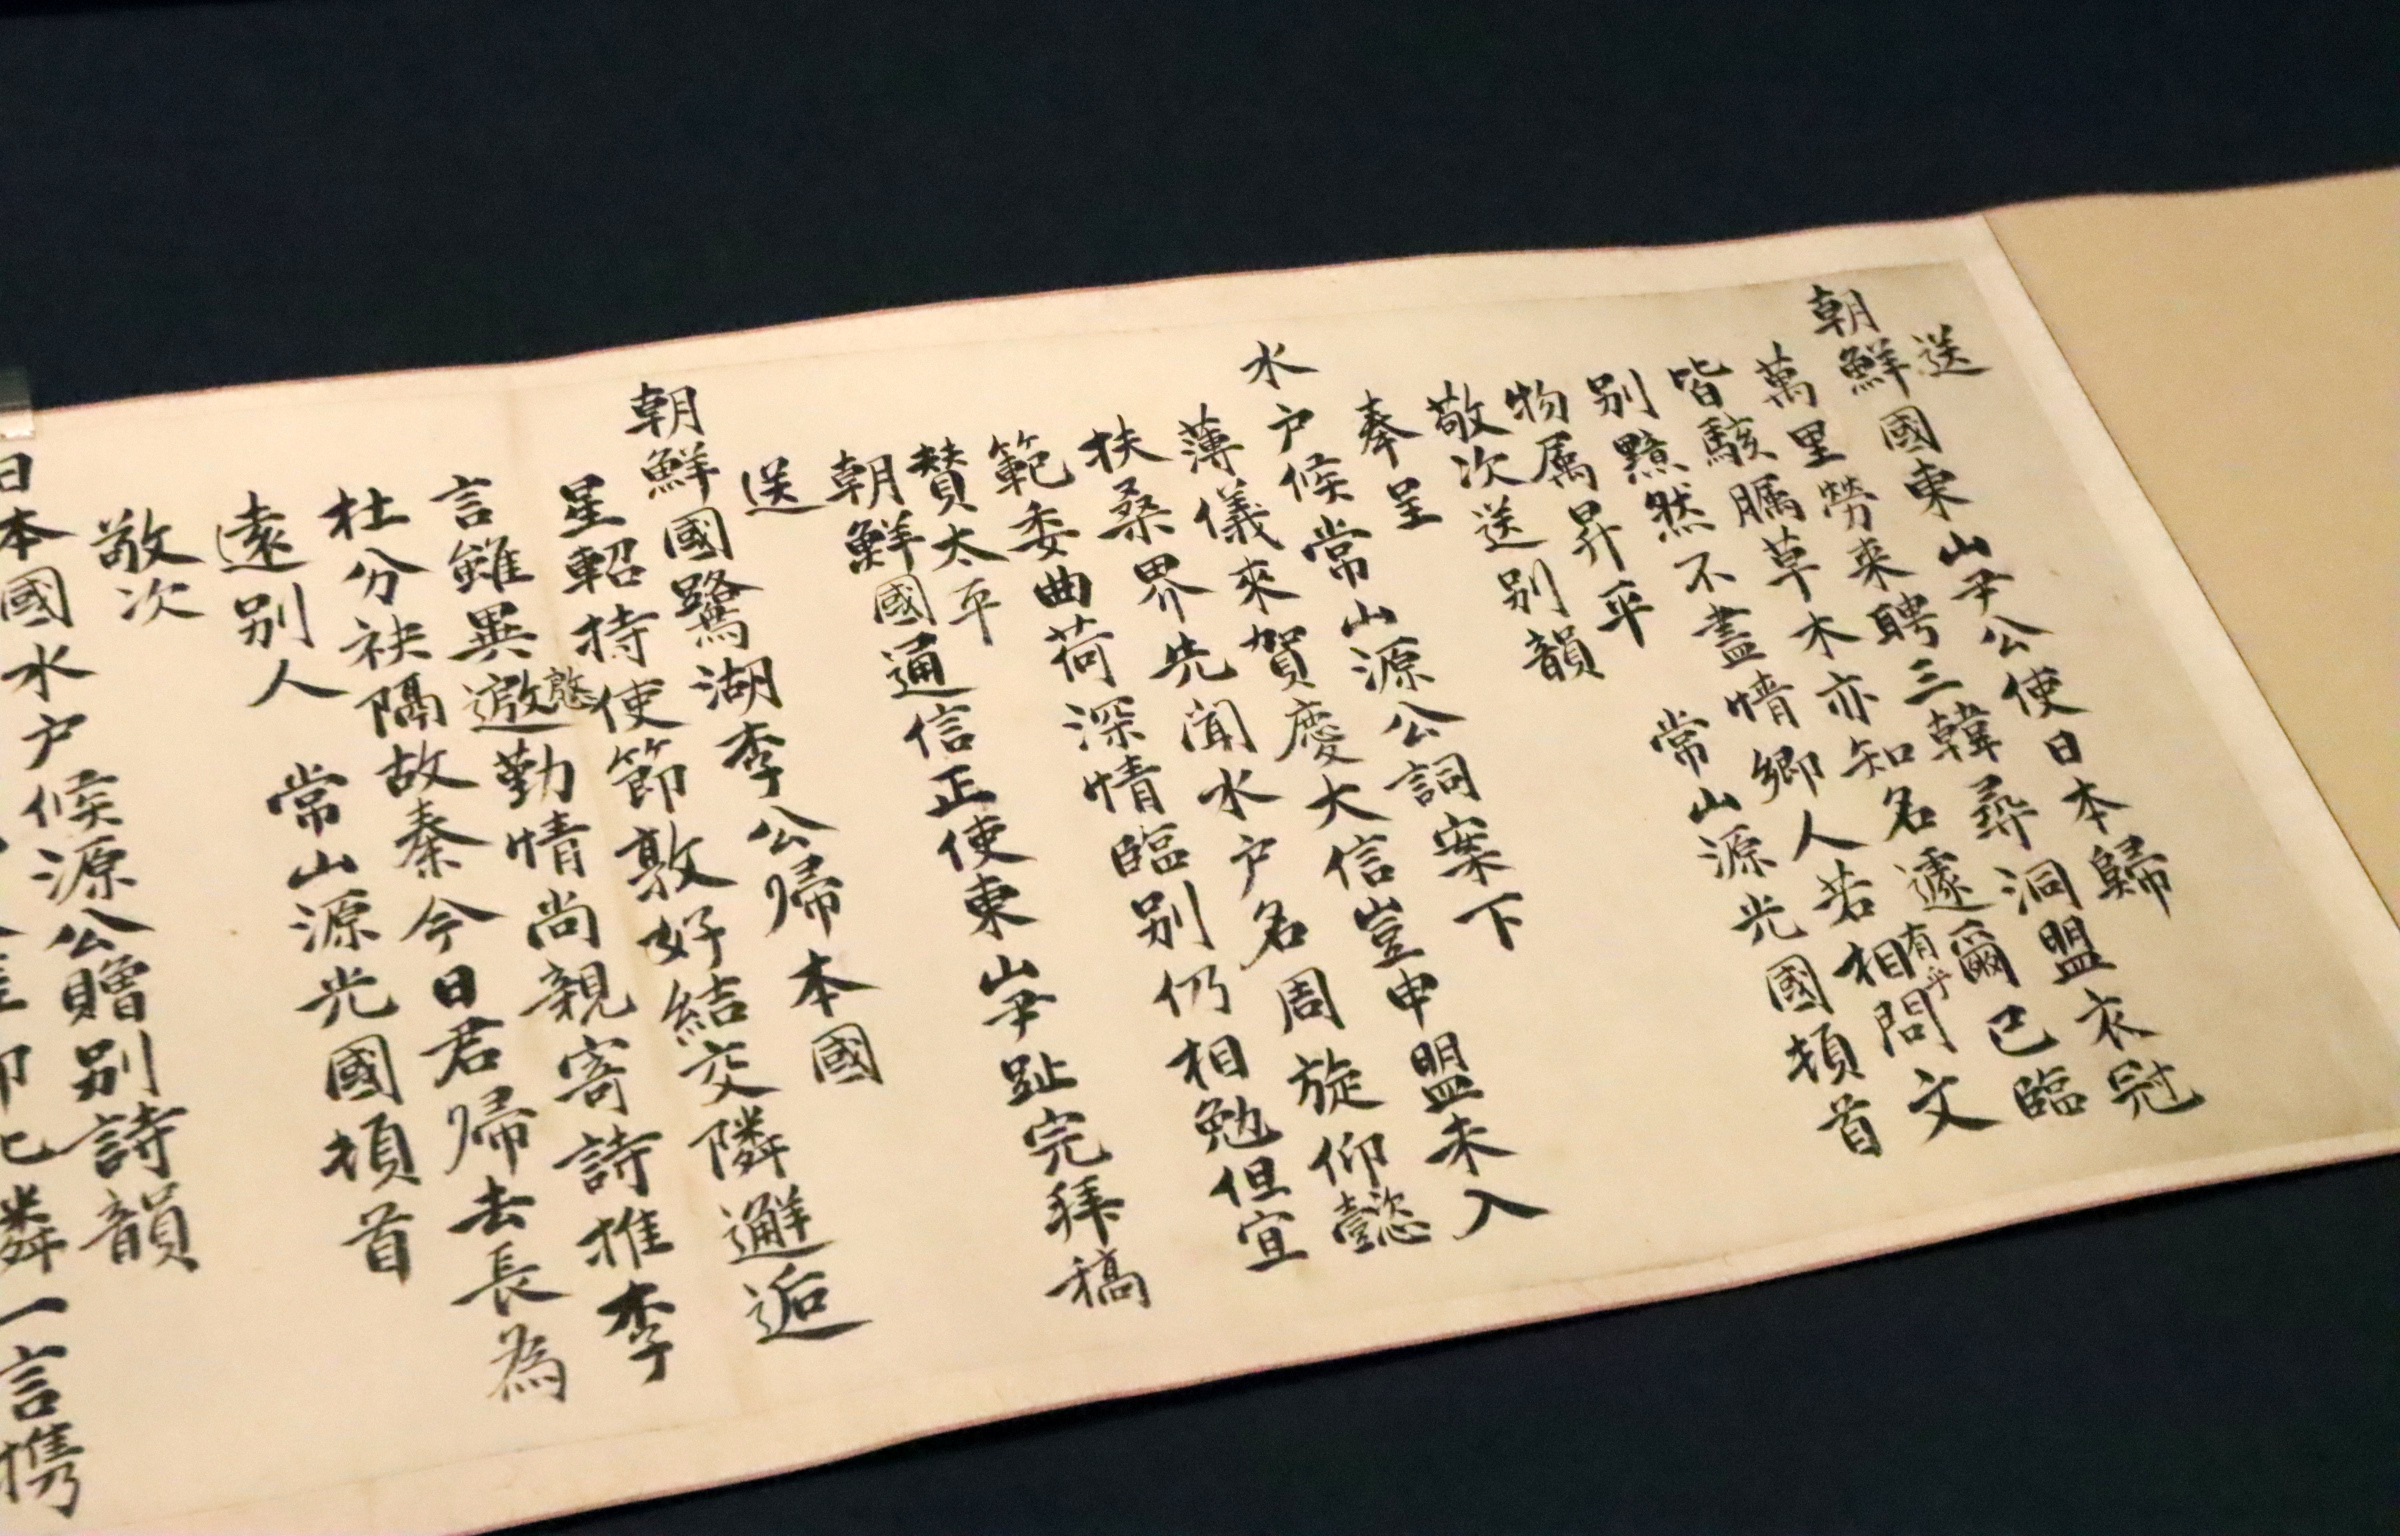 送
朝鮮國東山尹公使日本歸
萬里勞來聘三韓尋洞盟衣冠
皆駭矚草木亦知名遽爾已臨
別黯然不盡情鄉人若相問文
有乎
物属昇平
常山源光國頓首
敬次送別韻
奉呈
水户候常山源公詞案下
薄儀來賀慶大信豈申盟未入
扶桑界先聞水户名周旋仰懿
範委曲荷深情臨別仍相勉但宜
賛太平
朝鮮國通信正使東山尹趾完拜稿
送
朝鮮國鷺湖李公帰本國
星軺持使節敦好結交隣邂逅
言雖異慇勤情尚親寄詩推李
杜分袂隔故秦今日君帰去長為
遠別人
常山源光國頓首
敬次
日本國水户候源公贈別詩韻
一言携